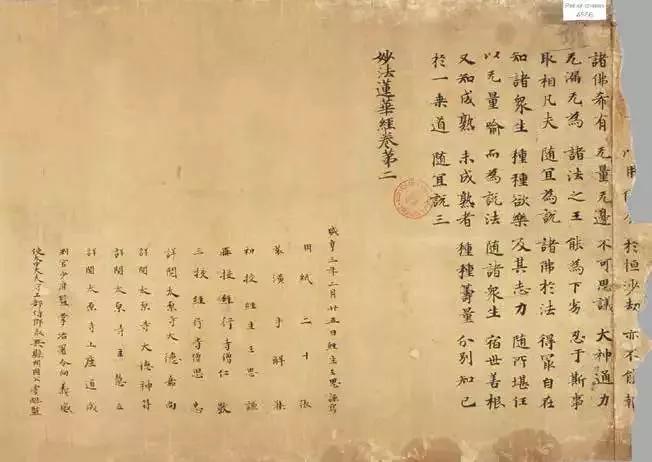 於恒沙劫 亦不能報
諸佛希有 无量无邊 不可思議 大神通力
无漏无為 諸法之王 能為下劣 忍于斯事
取相凡夫 隨宜為說 諸佛於法 得冣自在
知諸衆生 種種欲樂 及其志力 隨所堪任
以无量喻 而為說法 隨諸衆生 宿世善根
又知成熟 未成熟者 種種籌量 分別知已
於一乗道 隨宜說三
妙法蓮華經卷第二
咸亨三年二月廿五日經生王思謙寫
用紙二十張
裝潢手解集
初校經生王思謙
再校經行寺僧仁敬
三校經行寺僧思忠
詳閱太原寺大德嘉尚
詳閱太原寺大德神符
詳閱太原寺主慧立
詳閱太原寺上座道成
判官少府監掌冶署令向義感
使太中大夫守工部侍郎永興縣開國公虞昶監